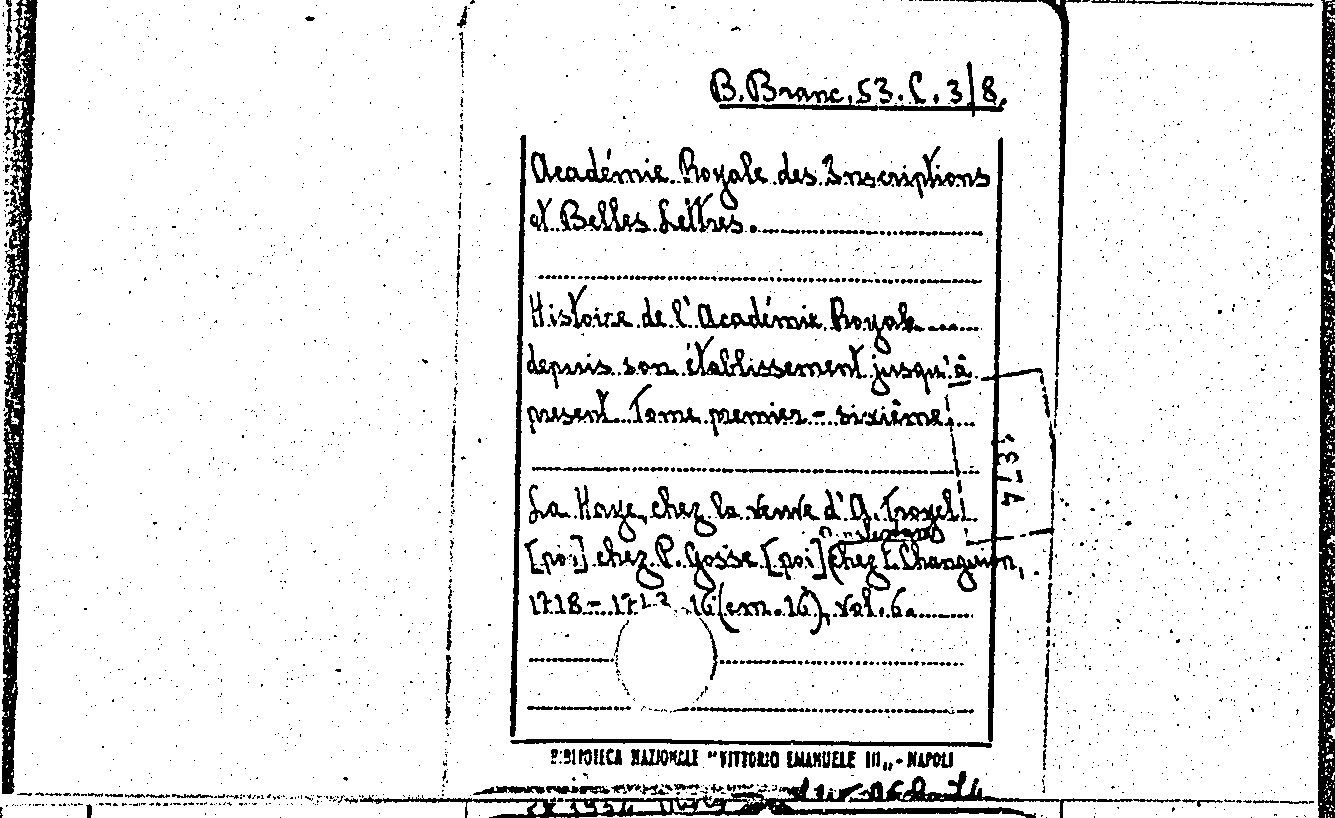 B. Branc. 53. C. 3/8.
Académie Royale des Inscriptions
et Belles Lettres.
Histoire de l'Académie Royale
depuis son établissement jusqu'à
present. Tome premier - sixième.
La Haye, chez la veuve d'A. Troyel
[poi] chez P. Gosse [poi] chez E. Changuion,
1718 - 16 (em. 16), vol. 6.
BIBLIOTECA NAZIONALE "VITTORIO EMANUELE III„ - NAPOLI